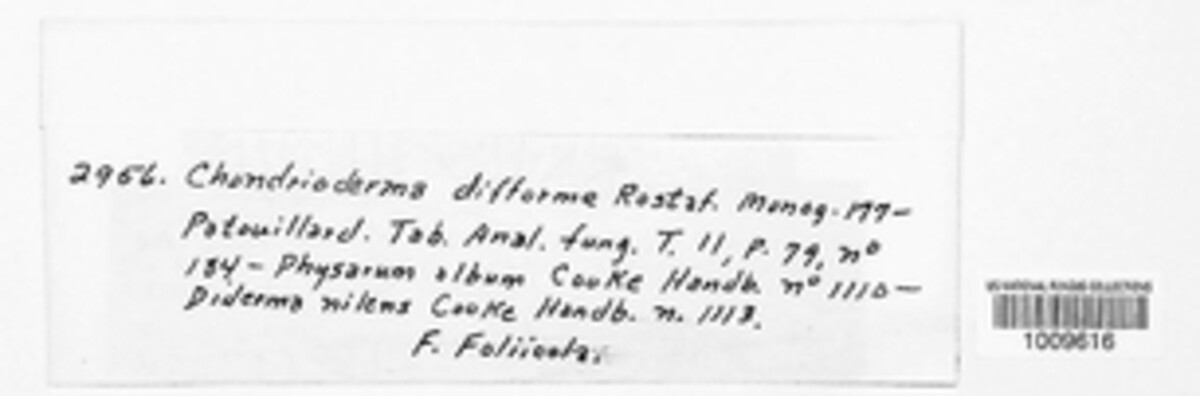 2956. Chondrioderma difforme Rostaf. Monog. 177–
Patouillard. Tab. Anal. fung. T. II, p. 79, nº
184 – Physarum album Cooke Handb. nº 1110 –
Diderma nitens Cooke Handb. n. 1113.
F. Foliicola.
US NATIONAL FUNGUS COLLECTIONS
1009616